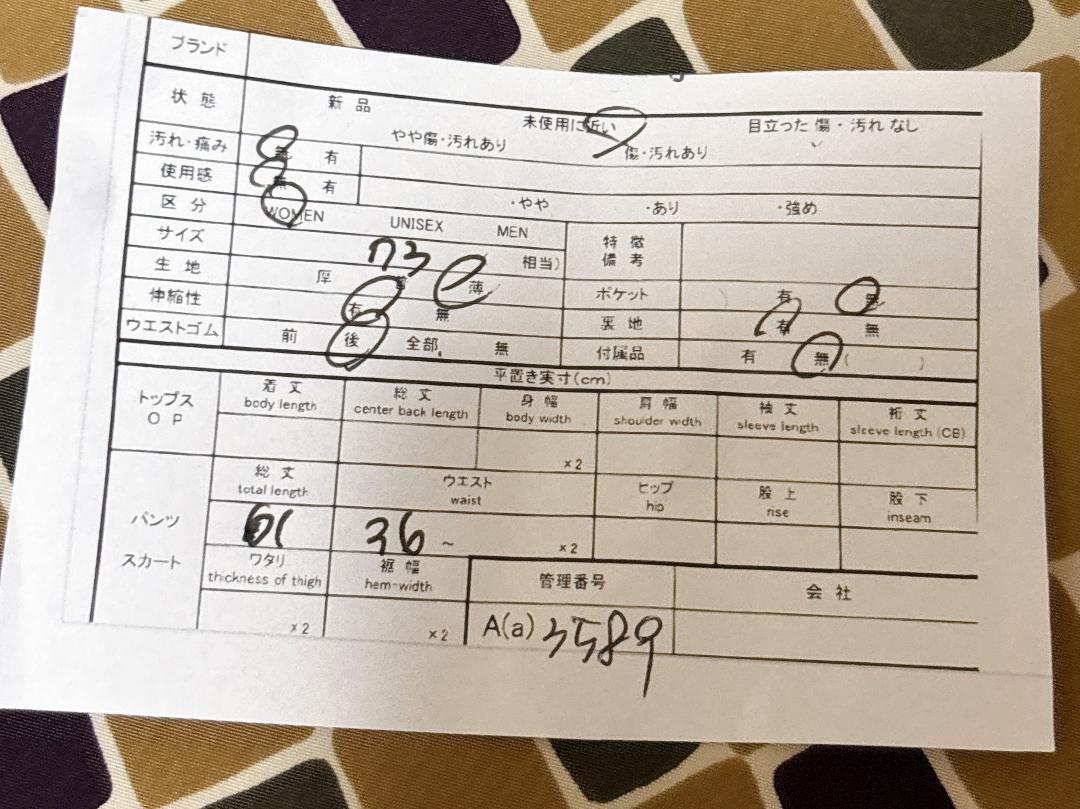 ブランド
状態 新品 未使用に近い 目立った傷・汚れなし
やや傷・汚れあり 傷・汚れあり
汚れ・痛み 無 有
使用感 無 有 ・やや ・あり ・強め
区分 WOMEN UNISEX MEN
サイズ 相当) 特徴 備考
生地 厚 普 薄 ポケット 有 無
伸縮性 有 無 裏地 有 無
ウエストゴム 前 後 全部 無 付属品 有 無( )
平置き実寸(cm)
トップス OP 着丈 body length 総丈 center back length 身幅 body width 肩幅 shoulder width 袖丈 sleeve length 裄丈 sleeve length (CB)
×2
パンツ スカート 総丈 total length ウエスト waist ヒップ hip 股上 rise 股下 inseam
61 36 ~ ×2
ワタリ thickness of thigh 裾幅 hem-width 管理番号 会社
×2 ×2 A(a) 3589